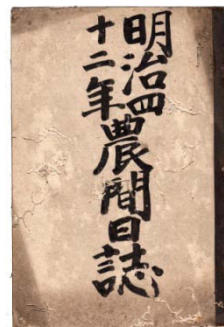 明治四
十二年農間日誌